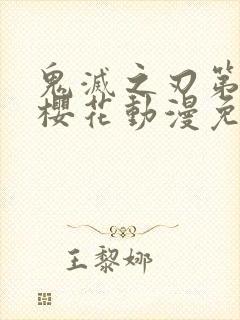 鬼滅之刃第
櫻花動漫免
王黎娜